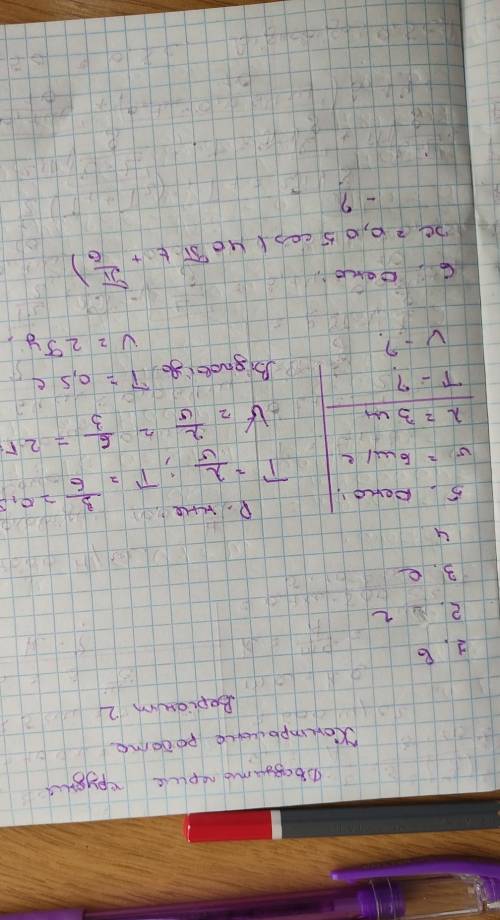 Двадцять перше грудня
Контрольна робота
Варіант 2
1. в
2. г
3. с
4
5. Дано:
υ = 6 м/с
λ = 3 м
T - ?
V - ?
Р-ння
T = λ/υ; T = 3/6 = 0,5
V = υ/λ = 6/3 = 2 Г
Відповідь T = 0,5 с
V = 2 Гц.
6. Дано:
x = 0,05 cos(40πt + π/6)
- ?